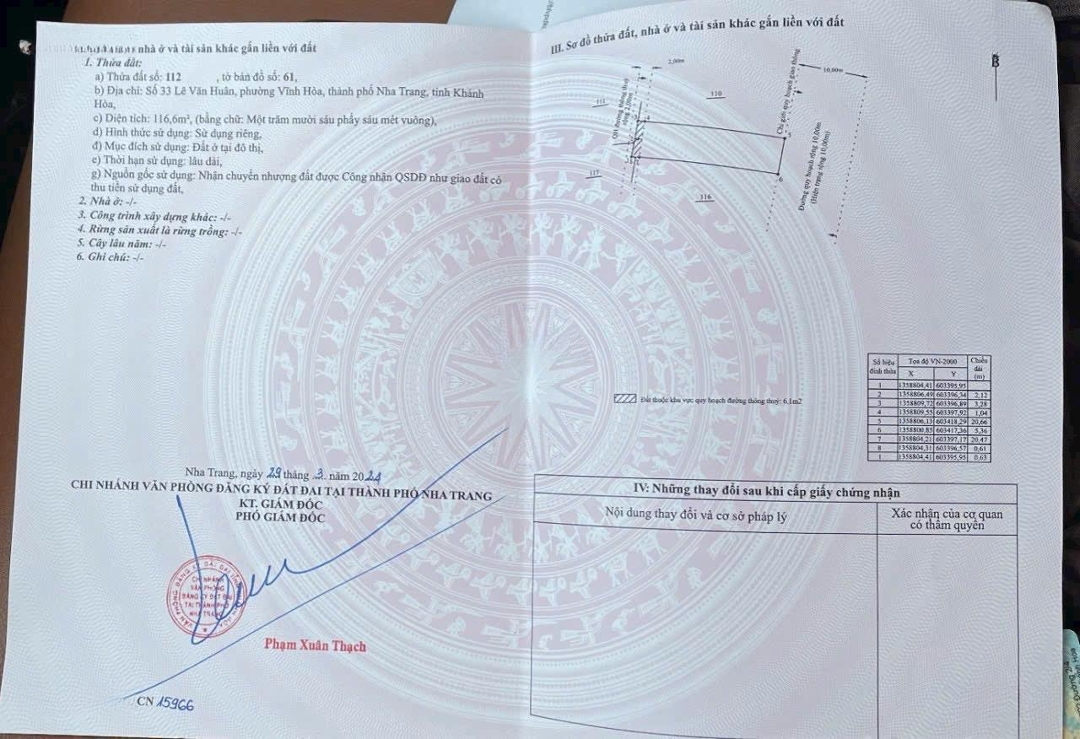 nhà ở và tài sản khác gắn liền với đất
1. Thửa đất:
a) Thửa đất số: 112 , tờ bản đồ số: 61,
b) Địa chỉ: Số 33 Lê Văn Huân, phường Vĩnh Hòa, thành phố Nha Trang, tỉnh Khánh
Hòa,
c) Diện tích: 116,6m², (bằng chữ: Một trăm mười sáu phẩy sáu mét vuông),
d) Hình thức sử dụng: Sử dụng riêng,
đ) Mục đích sử dụng: Đất ở tại đô thị,
e) Thời hạn sử dụng: lâu dài,
g) Nguồn gốc sử dụng: Nhận chuyển nhượng đất được Công nhận QSDĐ như giao đất có
thu tiền sử dụng đất,
2. Nhà ở: -/-
3. Công trình xây dựng khác: -/-
4. Rừng sản xuất là rừng trồng: -/-
5. Cây lâu năm: -/-
6. Ghi chú: -/-
Nha Trang, ngày 29 tháng 3 năm 2024
CHI NHÁNH VĂN PHÒNG ĐĂNG KÝ ĐẤT ĐAI TẠI THÀNH PHỐ NHA TRANG
KT. GIÁM ĐỐC
PHÓ GIÁM ĐỐC
CHI NHÁNH
VĂN PHÒNG
ĐĂNG KÝ ĐẤT ĐAI
TẠI THÀNH PHỐ
NHA TRANG
Phạm Xuân Thạch
CN 15966
III. Sơ đồ thửa đất, nhà ở và tài sản khác gắn liền với đất
B
2,00m
10,00m
111
110
117
116
6
Chỉ giới quy hoạch giao thông
Đường quy hoạch rộng 10,00m
(Hiện trạng rộng 10,00m)
Đất thuộc khu vực quy hoạch đường thông thuỷ: 6,1m2
Số hiệu đỉnh thửa Tọa độ VN-2000 Chiều dài (m)
X Y
1 1358804,41 603395,95
2 1358806,49 603396,34 2,12
3 1358809,72 603396,89 3,28
4 1358809,55 603397,92 1,04
5 1358806,13 603418,29 20,66
6 1358800,85 603417,36 5,36
7 1358804,21 603397,17 20,47
8 1358804,31 603396,57 0,61
1 1358804,41 603395,95 0,63
IV: Những thay đổi sau khi cấp giấy chứng nhận
Nội dung thay đổi và cơ sở pháp lý
Xác nhận của cơ quan
có thẩm quyền